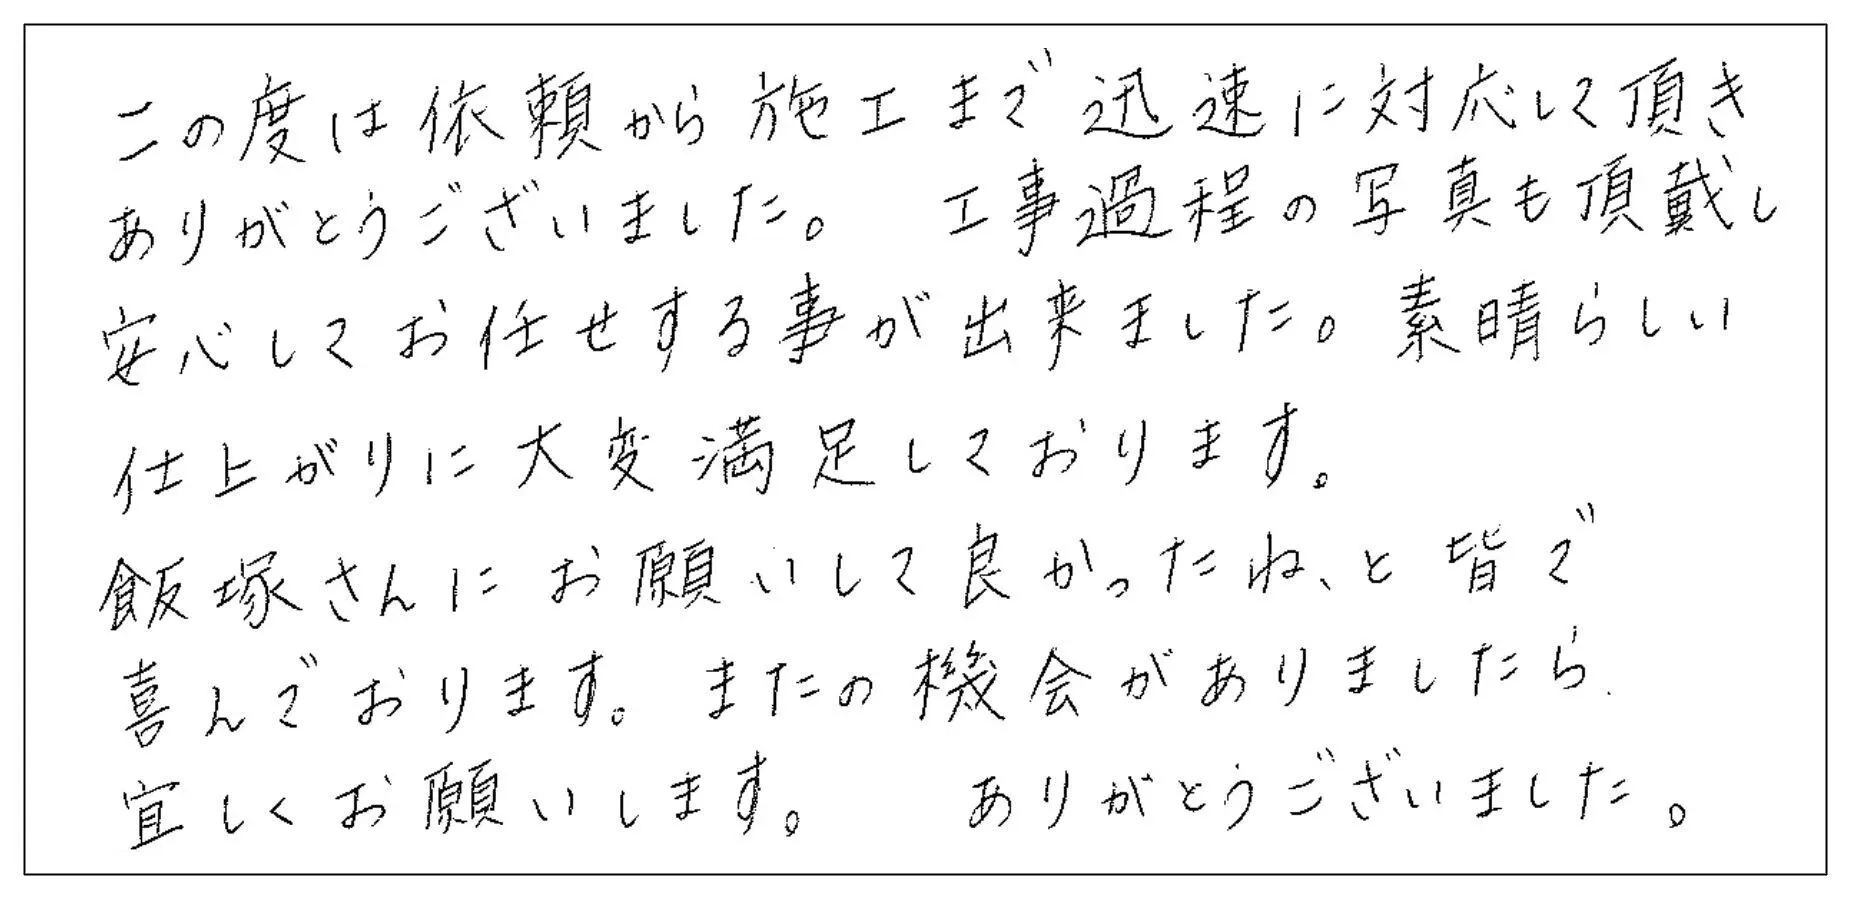 この度は依頼から施工まで迅速に対応して頂き
ありがとうございました。 工事過程の写真も頂戴し
安心してお任せする事が出来ました。素晴らしい
仕上がりに大変満足しております。
飯塚さんにお願いして良かったね、と皆で
喜んでおります。またの機会がありましたら、
宜しくお願いします。 ありがとうございました。